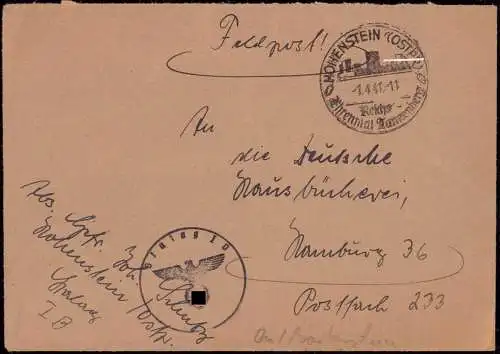 Feldpost!
HOHENSTEIN (OSTPR)
-1.4.41.-11
Reichs-
Ehrenmal Tannenberg
An
die Deutsche
Hausbücherei,
Hamburg 36
Postfach 233
Abs. Gefr. Joh. Schulz
Hohenstein/Ostpr.
Stalag
I B